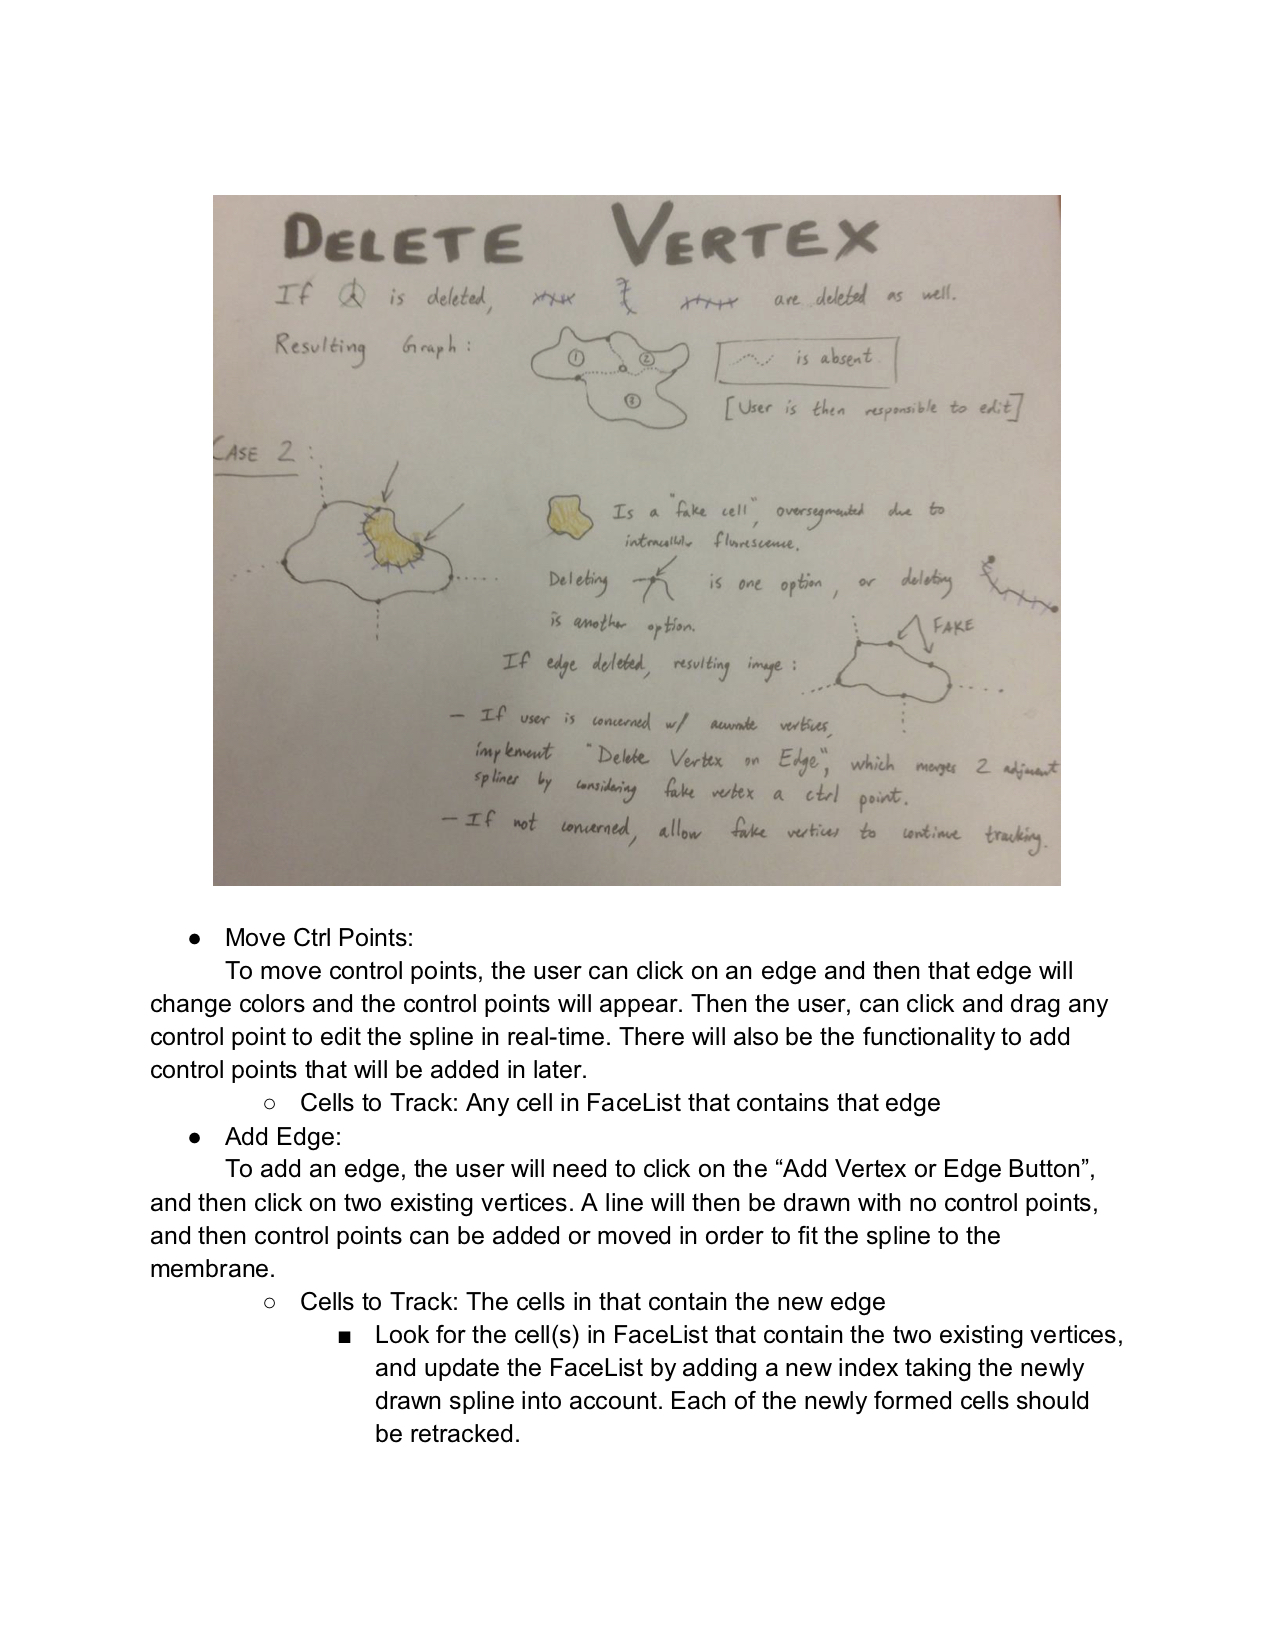 DELETE VERTEX
If is deleted, are deleted as well.
Resulting Graph:
1 2
is absent
3
[User is then responsible to edit]
CASE 2:
Is a "fake cell", oversegmented due to
flurescence.
Deleting is one option, or deleting
is another option.
FAKE
If edge deleted, resulting image:
— If user is concerned w/ accurate vertices,
implement "Delete Vertex on Edge", which merges 2 adjacent
splines by considering fake vertex a ctrl point.
— If not concerned, allow fake vertices to continue tracking.
● Move Ctrl Points:
To move control points, the user can click on an edge and then that edge will
change colors and the control points will appear. Then the user, can click and drag any
control point to edit the spline in real-time. There will also be the functionality to add
control points that will be added in later.
○ Cells to Track: Any cell in FaceList that contains that edge
● Add Edge:
To add an edge, the user will need to click on the “Add Vertex or Edge Button”,
and then click on two existing vertices. A line will then be drawn with no control points,
and then control points can be added or moved in order to fit the spline to the
membrane.
○ Cells to Track: The cells in that contain the new edge
■ Look for the cell(s) in FaceList that contain the two existing vertices,
and update the FaceList by adding a new index taking the newly
drawn spline into account. Each of the newly formed cells should
be retracked.